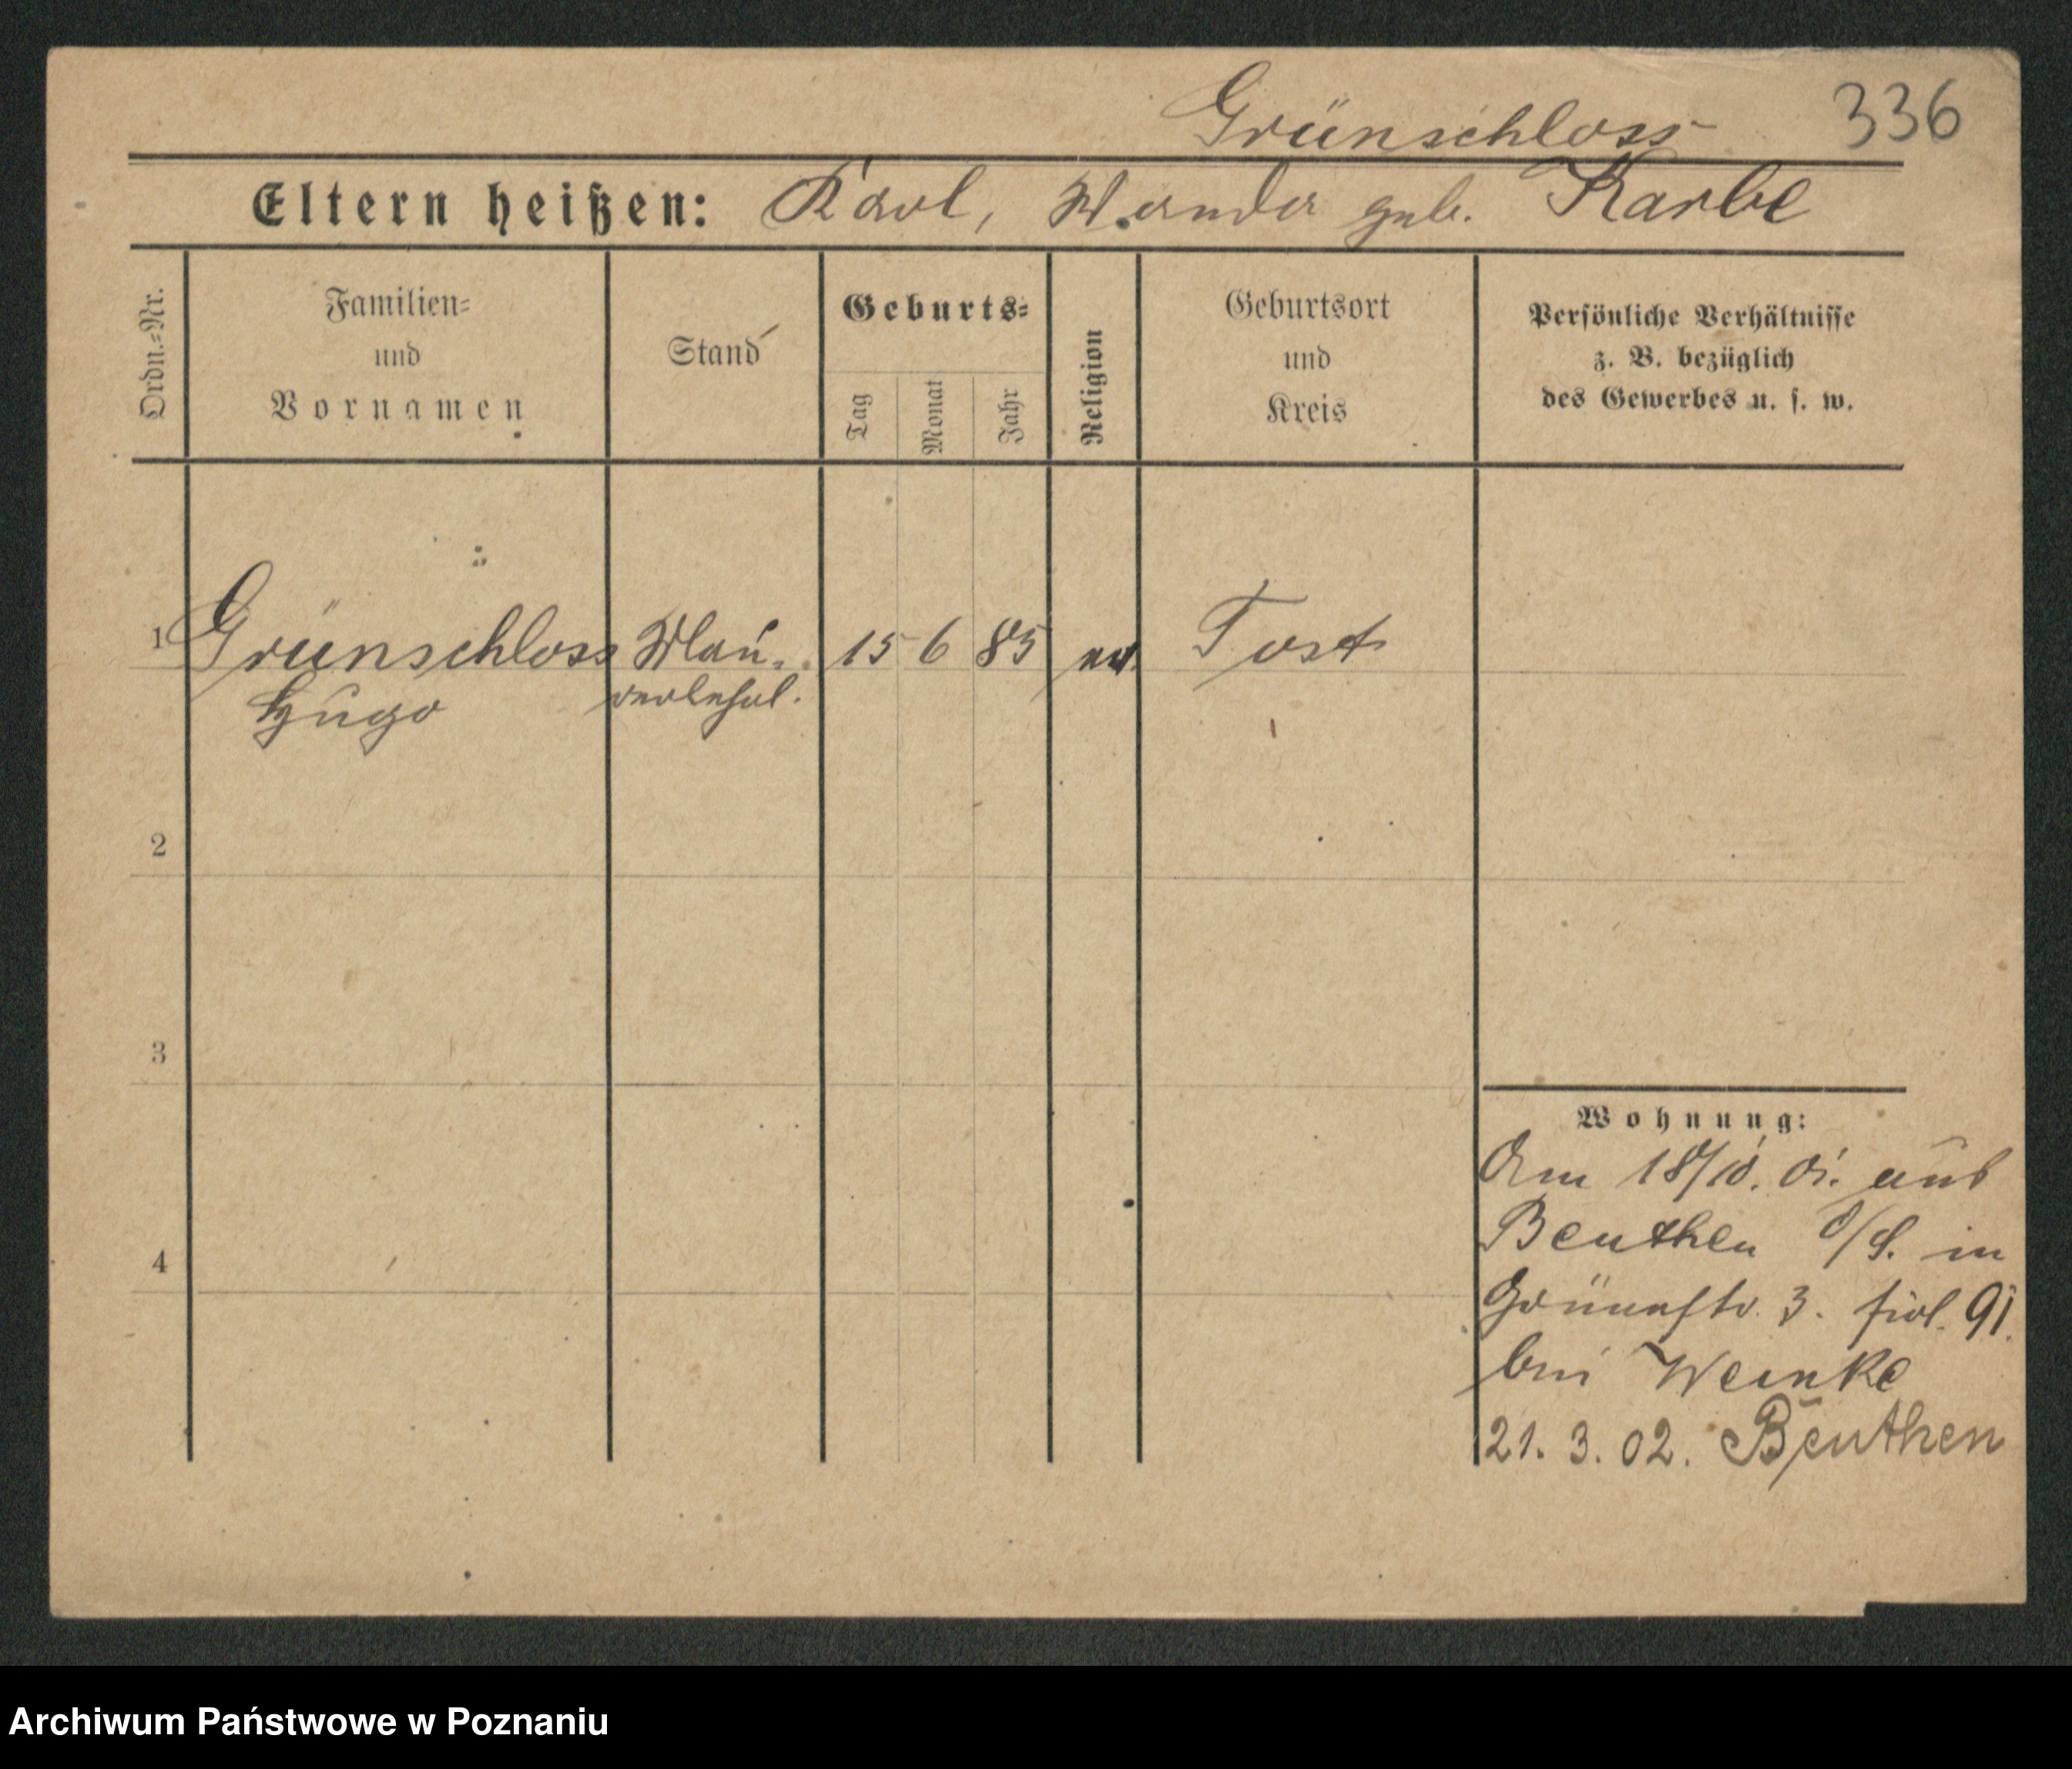 Grünschloss 336
Eltern heißen: Karl, Wanda geb. Karbe
Ordn.-Nr.
Familien-
und
Vornamen
Stand
Geburts-
Tag
Monat
Jahr
Religion
Geburtsort
und
Kreis
Persönliche Verhältnisse
z. B. bezüglich
des Gewerbes u. s. w.
1 Grünschloss Mau- 15 6 85 ev. Tost
Hugo rerlehrl.
2
3
4
Wohnung:
Am 18/10. 01. aus
Beuthen O/S. in
Grünestr. 3. fiel. 91.
bei Weinke
21. 3. 02. Beuthen
Archiwum Państwowe w Poznaniu